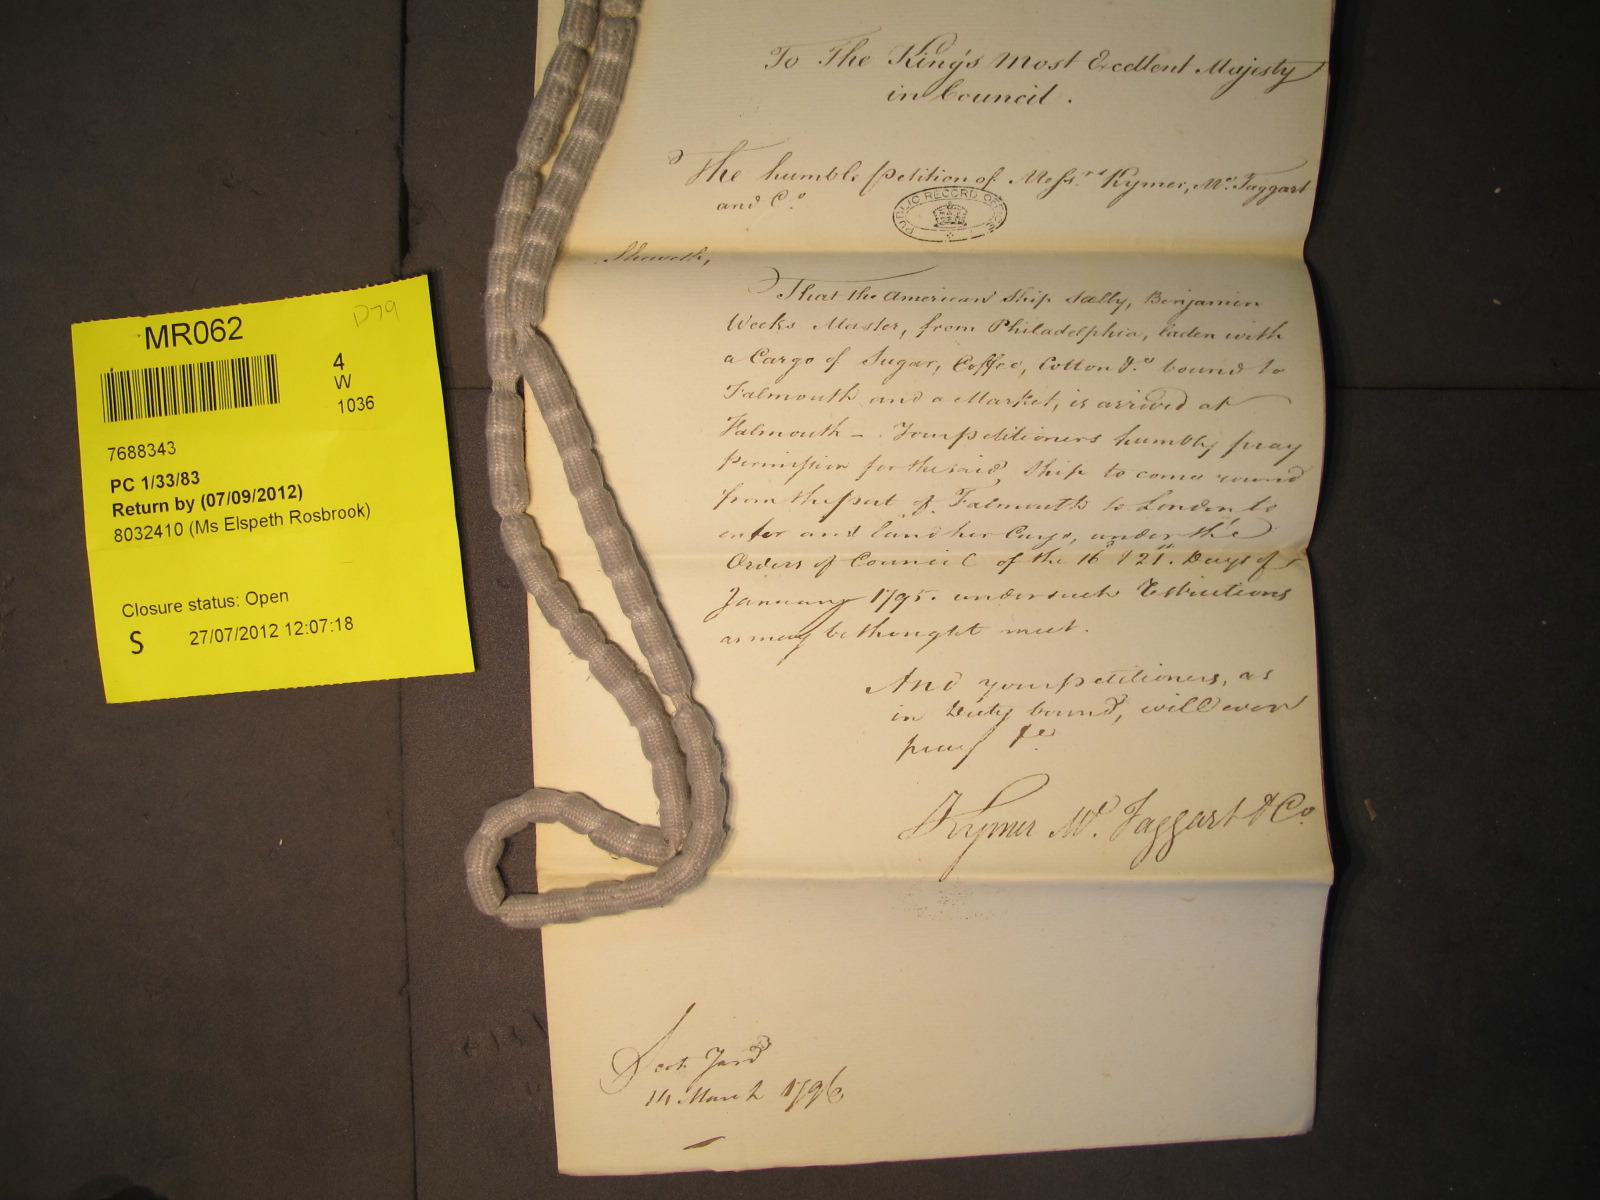 MR062
D79
4
W
1036
7688343
PC 1/33/83
Return by (07/09/2012)
8032410 (Ms Elspeth Rosbrook)
Closure status: Open
S 27/07/2012 12:07:18
To The King's Most Excellent Majesty
in Council.
The humble petition of Mess.rs Kymer, Mc. Taggart
and C.o
PUBLIC RECORD OFFICE
Sheweth,
That the American Ship Sally, Benjamin
Weeks Master, from Philadelphia, laden with
a Cargo of Sugar, Coffee, Cotton &.c bound to
Falmouth and a Market, is arrived at
Falmouth - Your petitioners humbly pray
permission for the said Ship to come round
from the port of Falmouth to London to
enter and land her Cargo, under the
Orders of Council of the 16 & 21st. Days of
January 1795. under such Restrictions
as may be thought meet.
And your petitioners, as
in Duty bound, will ever
pray &c
Kymer Mc. Taggart & Co
Scot. Yard
14 March 1796